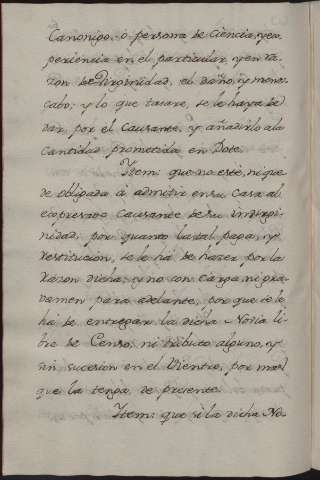 Canonigo, ó persona de Ciencia, y ex-
periencia en el particular, y en ra-
zon de Virginidad, el daño, y menos-
cabo; y lo que tasare, se le haya de
dar, por el Causante, y añadirlo a la
Cantidad prometida en Dote.
Item: que no esté, ni que-
de obligada á admitir en su Casa al
expresado Causante de su indirgi-
nidad, por quanto la tal paga, y
restitución, se le ha de hazer por la
razon dicha, y no con Carga, ni gra-
vamen para adelante, por que se le
há de entregar la dicha Novia li-
bre de Censo, ni tributo alguno, y
sin sucesion en el Vientre, por mas
que la tenga de presente.
Item: que si la dicha No-